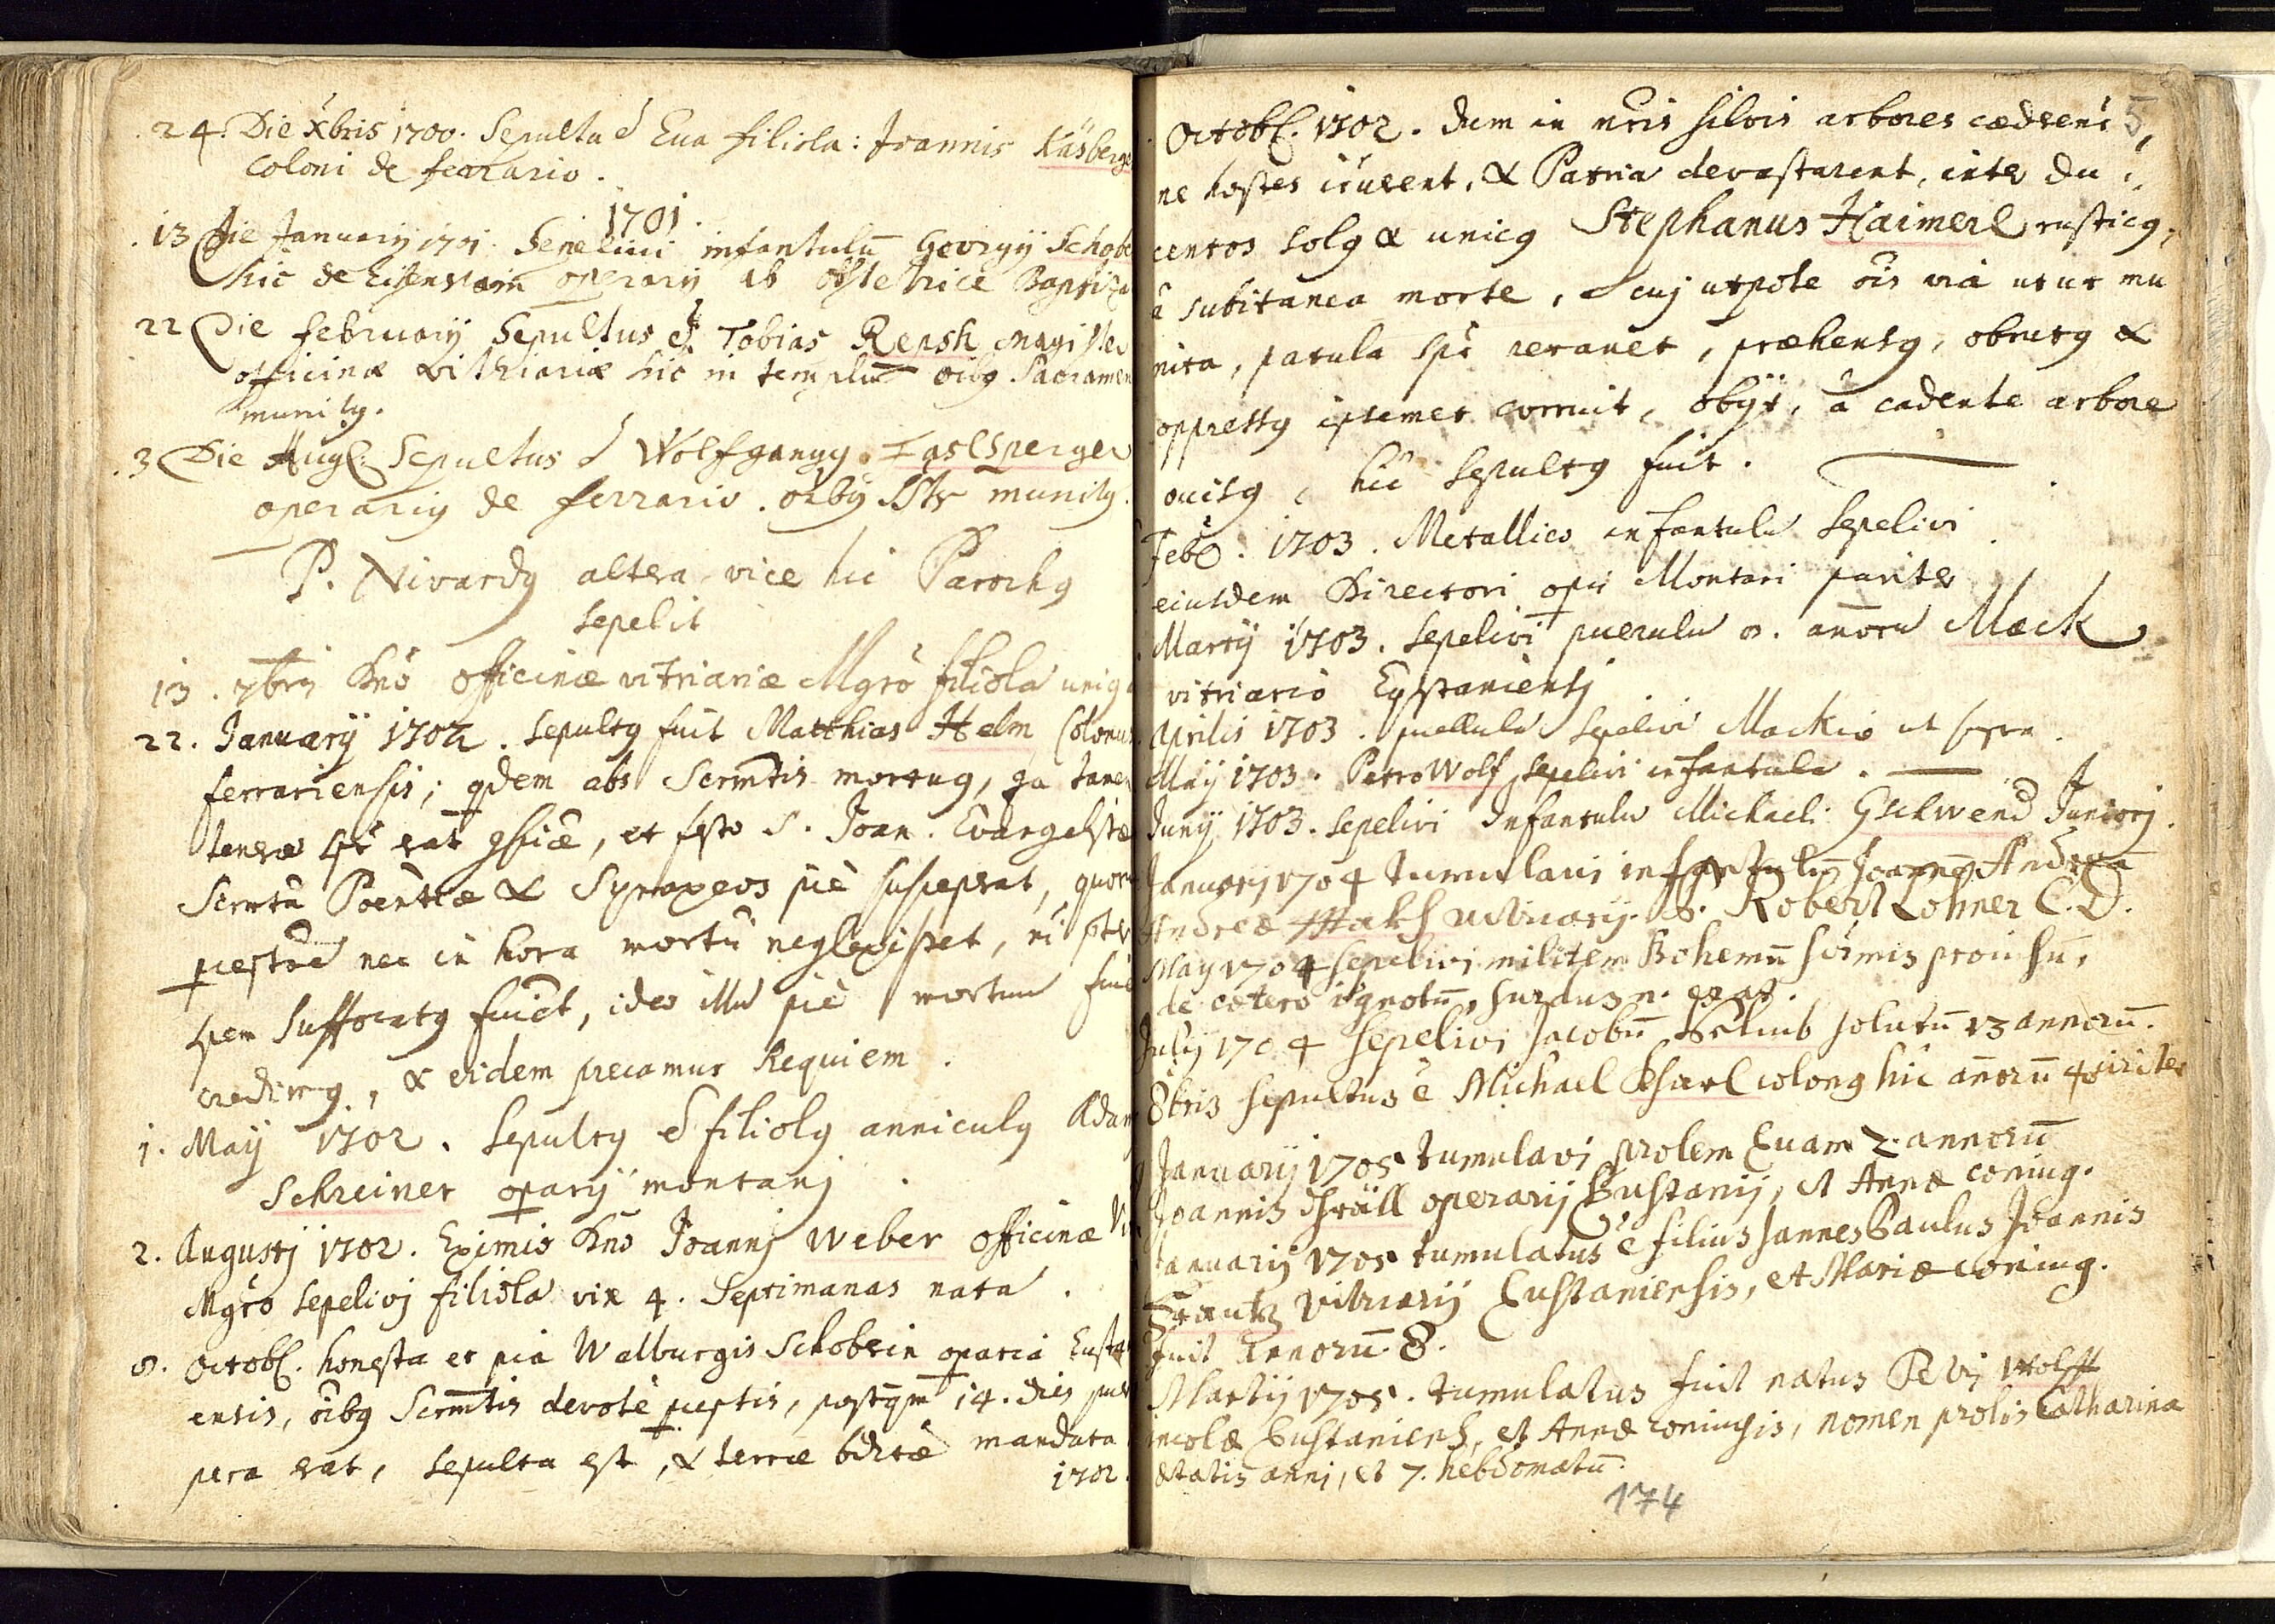 24. Die Xbris 1700. Sepulta ē Eva filiola: Joannis Käsberge
coloni de ferrario.
1701.
13 Die Januarij 1701. Sepelivi infantulū Georgij Schobe
hic de Eisenstain operarij ab obstetrice Baptiza
22 Die februarij Sepultus ē Tobias Repsh magister
officinæ vitriariæ hic in templū oībq Sacramen
munitq.
3 Die Augl. Sepultus ē Wolfgangq Faslsperger
operariq de ferrario. oībq SSts munitq.
P. Nivardq altera vice hic Parochq
sepelit
13. 7bris Dnō officinæ vitriariæ Mgrō filiola unig
22. Januarij 1702. sepultq fuit Matthias Helm Colonus
ferrariensis; qdem abs Scrmtis mortuq, qa tamen
teneræ erat , et festo S. Joan. Evangelistæ
Scrmtū Poentiæ & Synaxeos piè susceperat, quor
nec in hora mortis neglexisset, ni pter
spem suffocatq fuiēt, ideo illū piè mortuum fui
credimq, & eidem precamur Requiem.
1. Maij 1702. Sepultq ē filiolq anniculq Adam
Schreiner oparij montanj.
2. Augustj 1702. Eximio Dnō Joannj Weber officinæ Vi
Mgrō sepelivj filiola vix 4. Septimanas nata.
8. Octobl. honesta et pia Walburgis Schobrin oparia Eusta
ensis, oībq Scrmtis devotè pceptis, postqm 14. dies
pera erat, sepulta est, & terræ mandata
1702.
5,
Octobl. 1702. dum in nris silvis arbores cæderent
ne hostes irruerent, & Patria devastarent, inter du
centos solq & unicq Stephanus Haimerl rusticq,
a subitanea morte, cuj utpote ois via ut ut mu
nita, patula spr remanet, præhensq, obrutq &
oppressq ipsemet corruit, obijt, à cadente arbore
occisq, hic sepultq fuit.
Feb. 1703. Metallico infantulū sepelivi
eiusdem Directori opis Montani pariter
Martij 1703. sepelivi puerulū 8. annorū Mack
vitriario Eystaniensj
Aprilis 1703. puellulā sepelivi Mackio ut supra.
Maij 1703. Petro Wolf sepelivi infantulū.
Junij 1703. sepelivi Infantulū Michaeli Gschwend Juniorj.
Januarij 1704 tumulavi infantulū Joannē Andreā
Andreæ Makh vitriarij. P. Robert Lohner C. D.
Maij 1704 sepelivi militem Bohemū provisū,
de cætero ignotū, surdus n. erat.
Julij 1704 sepelivi Jacobū Schub solutū 23 annorū.
8bris sepultus ē Michael Kharl colonq hic annorū 40 circiter
Januarij 1705 tumulavj prolem Evam 2. annorū
Joannis Thräll operarij Eustanij, et Annæ coniug.
Januarij 1705 tumulatus ē filius Jannes Paulus Joannis
Frantz Vitriarij Eustaniensis, et Mariæ coniug.
fuit Annorū 8.
Martij 1705. tumulatus fuit natus Petrj Wolff
incolæ Eustaniens, et Annæ coniugis, nomen prolis Catharina
ætatis anni, et 7. hebdomatū.
174